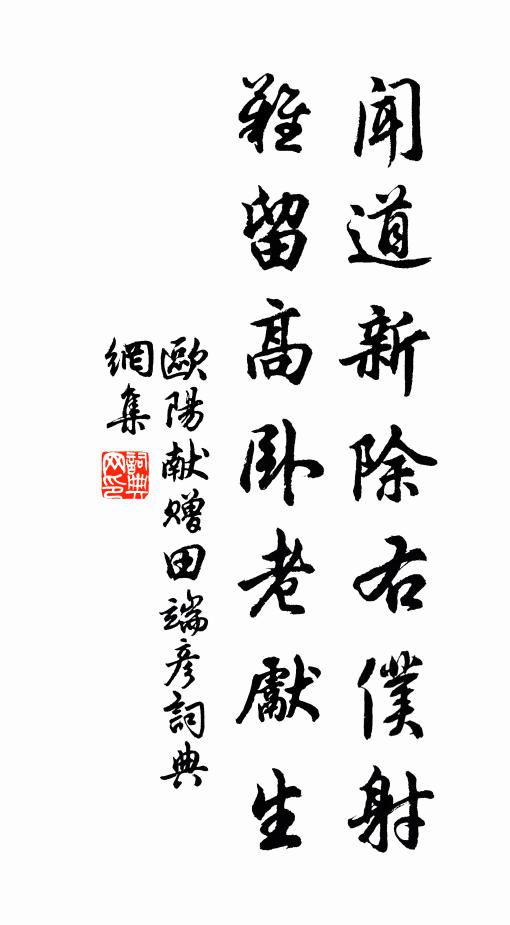 聞道新除右僕射
難留高卧老獻生
歐陽献贈田端彥詞典
網集
詞典网印